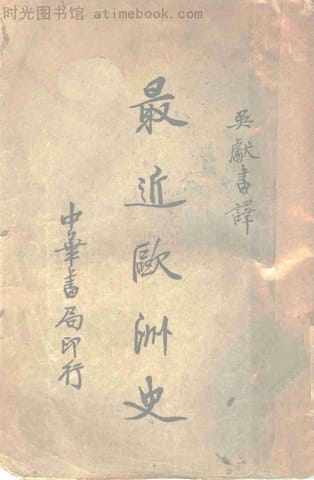 时光图书馆 atimebook.com
吳獻書譯
最近歐洲史
中華書局印行